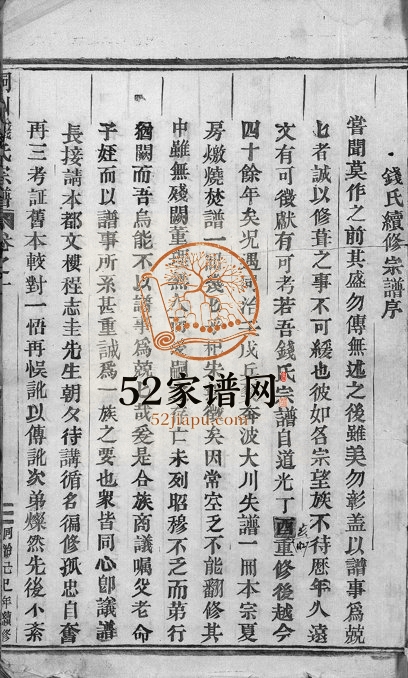 錢氏續修宗譜序
嘗聞莫作之前其盛勿傳無述之後雖美勿彰盖以譜事為兢
七者誠以修葺之事不可緩也彼如各宗望族不待歷年久遠
文有可徵獻有可考若吾錢氏宗譜自道光丁酉重修後越今
四十餘年矣况遇同治壬戌兵奔波大川失譜一冊本宗夏
房燬燒焚譜一矣因常空乏不能翻修其
中雖無殘闕董理亡未列昭穆不乏而第行
猶闕而吾烏能不以譜事為兢哉爰是合族商議嘱父老命
子姪而以譜事所系甚重誠爲一族之要也衆皆同心卽議譜
長接請本郡文樓程志圭先生朝夕待講循名徧修孤忠自奮
再三考証舊本較對一悟再悞訛以傳訛次弟燦然先後不紊
氏宗譜
卷之一
己巳年續修
52家谱网
52jiapu.com